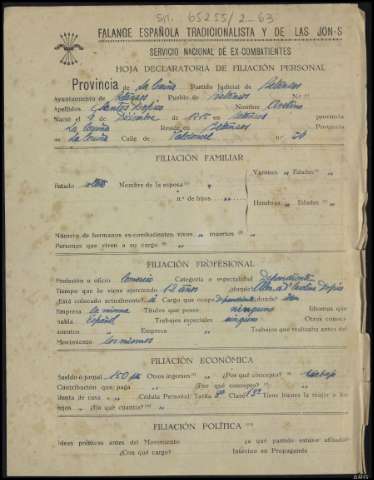 Sig. 65255/2-63
FALANGE ESPAÑOLA TRADICIONALISTA Y DE LAS JON-S
SERVICIO NACIONAL DE EX-COMBATIENTES
HOJA DECLARATORIA DE FILIACIÓN PERSONAL
Provincia de La Coruña Partido Judicial de Betanzos
Ayuntamiento de Betanzos Pueblo de Betanzos
Apellidos Santos Nombre Avelino
Nació el 9 Diciembre de 1915 en Betanzos provincia
La Coruña Reside en Betanzos Provincia
de La Coruña Calle de nº 20
FILIACIÓN FAMILIAR
Estado Nombre de la esposa Varones Edades
n.º de hijos Hembras Edades
Número de hermanos ex-combatientes vivos muertos
Personas que viven a su cargo
FILIACIÓN PROFESIONAL
Profesión u oficio Comercio Categoría o especialidad Dependiente
Tiempo que la viene ejerciendo 12 años
¿Está colocado actualmente? si Cargo que ocupa dependiente
Empresa la misma Títulos que posee ninguno Idiomas que
habla Español Trabajos especiales ninguno Otros conoci-
mientos Empresa Trabajos que realizaba antes del
Movimiento los mismos
FILIACIÓN ECONÓMICA
Sueldo o jornal 150 pts Otros ingresos ¿Por qué concepto? trabajo
Contribución que paga ¿Por qué concepto?
Renta de casa Cédula Personal: Tarifa Clase 13ª Tiene bienes la mujer o los
hijos ¿En qué cuantía?
FILIACIÓN POLÍTICA
Ideas políticas antes del Movimiento a qué partido estuvo afiliado
¿Con qué cargo?